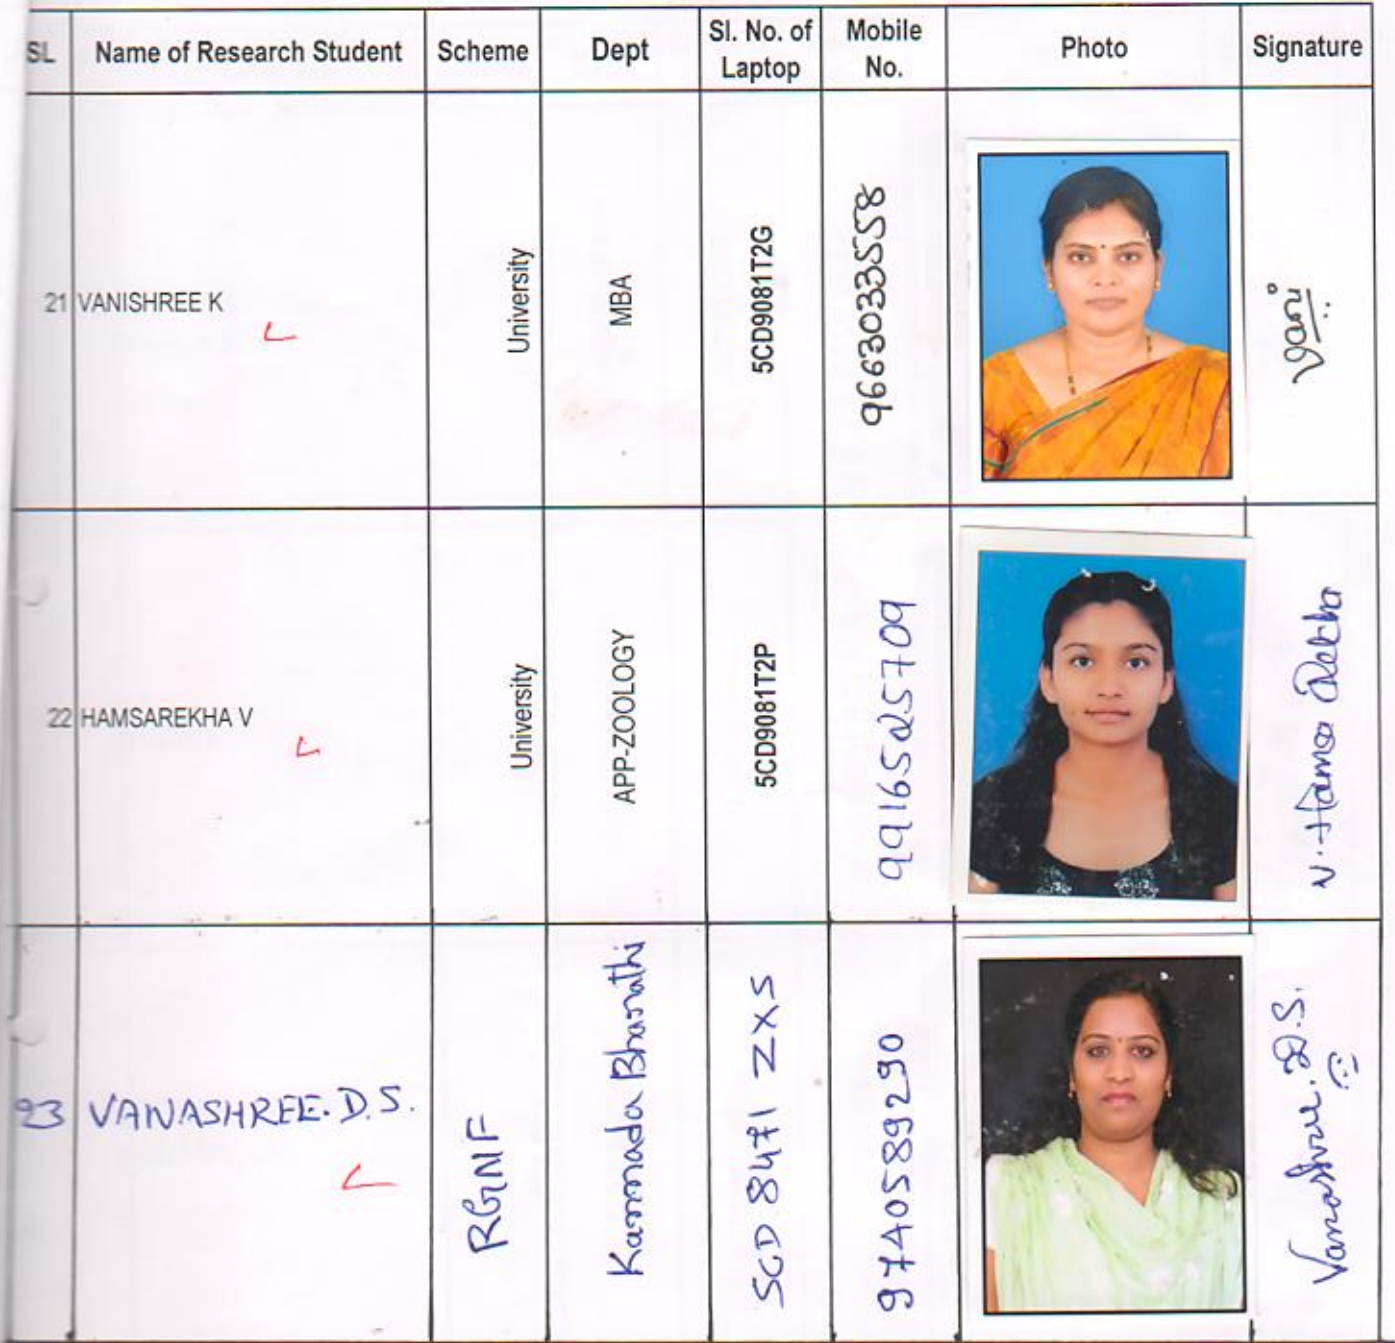 SL Name of Research Student Scheme Dept Sl. No. of Laptop Mobile No. Photo Signature
21 VANISHREE K University MBA 5CD9081T2G 9663033558 Vani
22 HAMSAREKHA V University APP-ZOOLOGY 5CD9081T2P 9916525709 V. Hamsa Rekha
23 VANASHREE. D.S. RGNF Kannada Bharathi 5CD 8471 ZXS 9740589290 Vanashree. D.S.